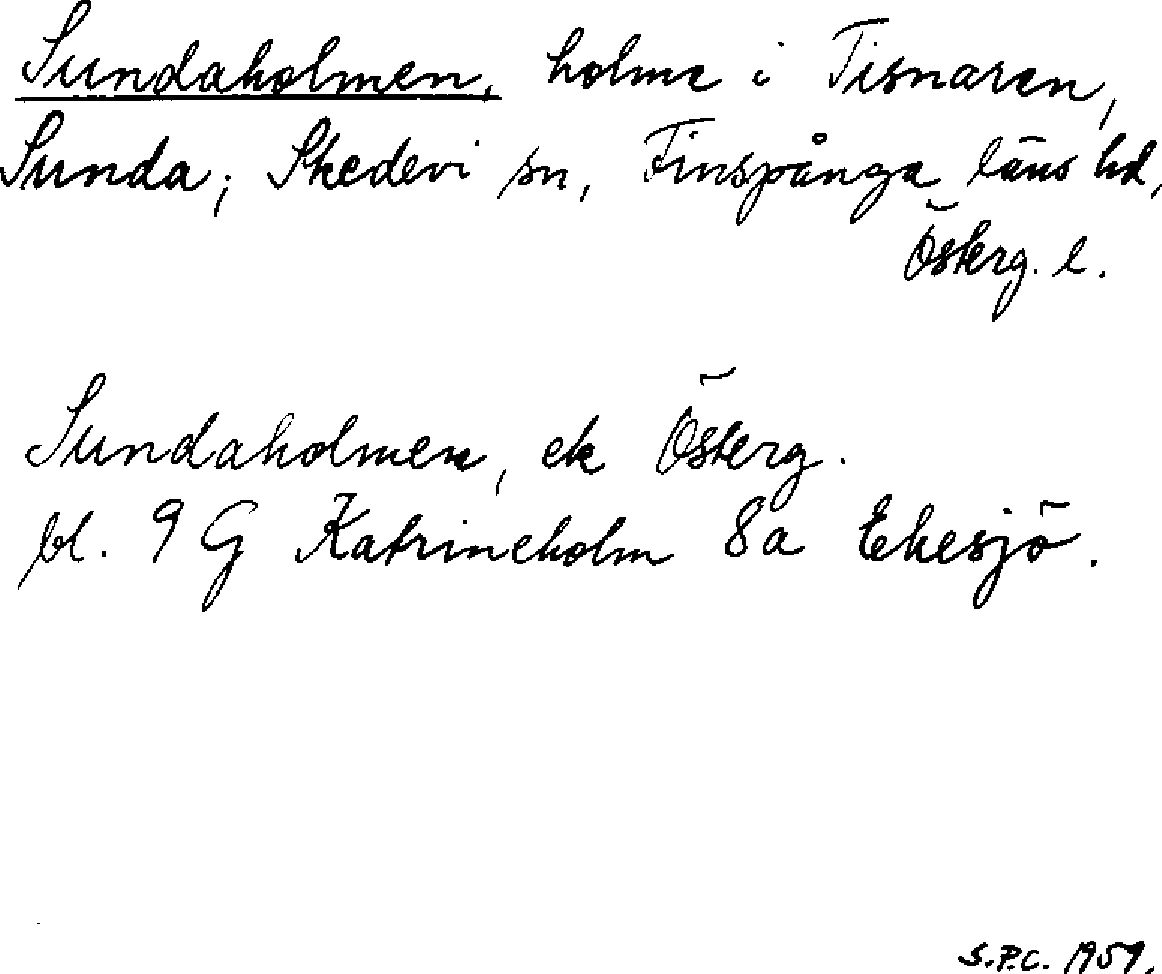 Sundaholmen, holme i Tisnaren,
Sunda; Skedevi sn, Finspånga läns hd,
Österg. l.
Sundaholmen, ek Österg.
bl. 9 G Katrineholm 8a Ekesjö.
S.P.C. 1959.